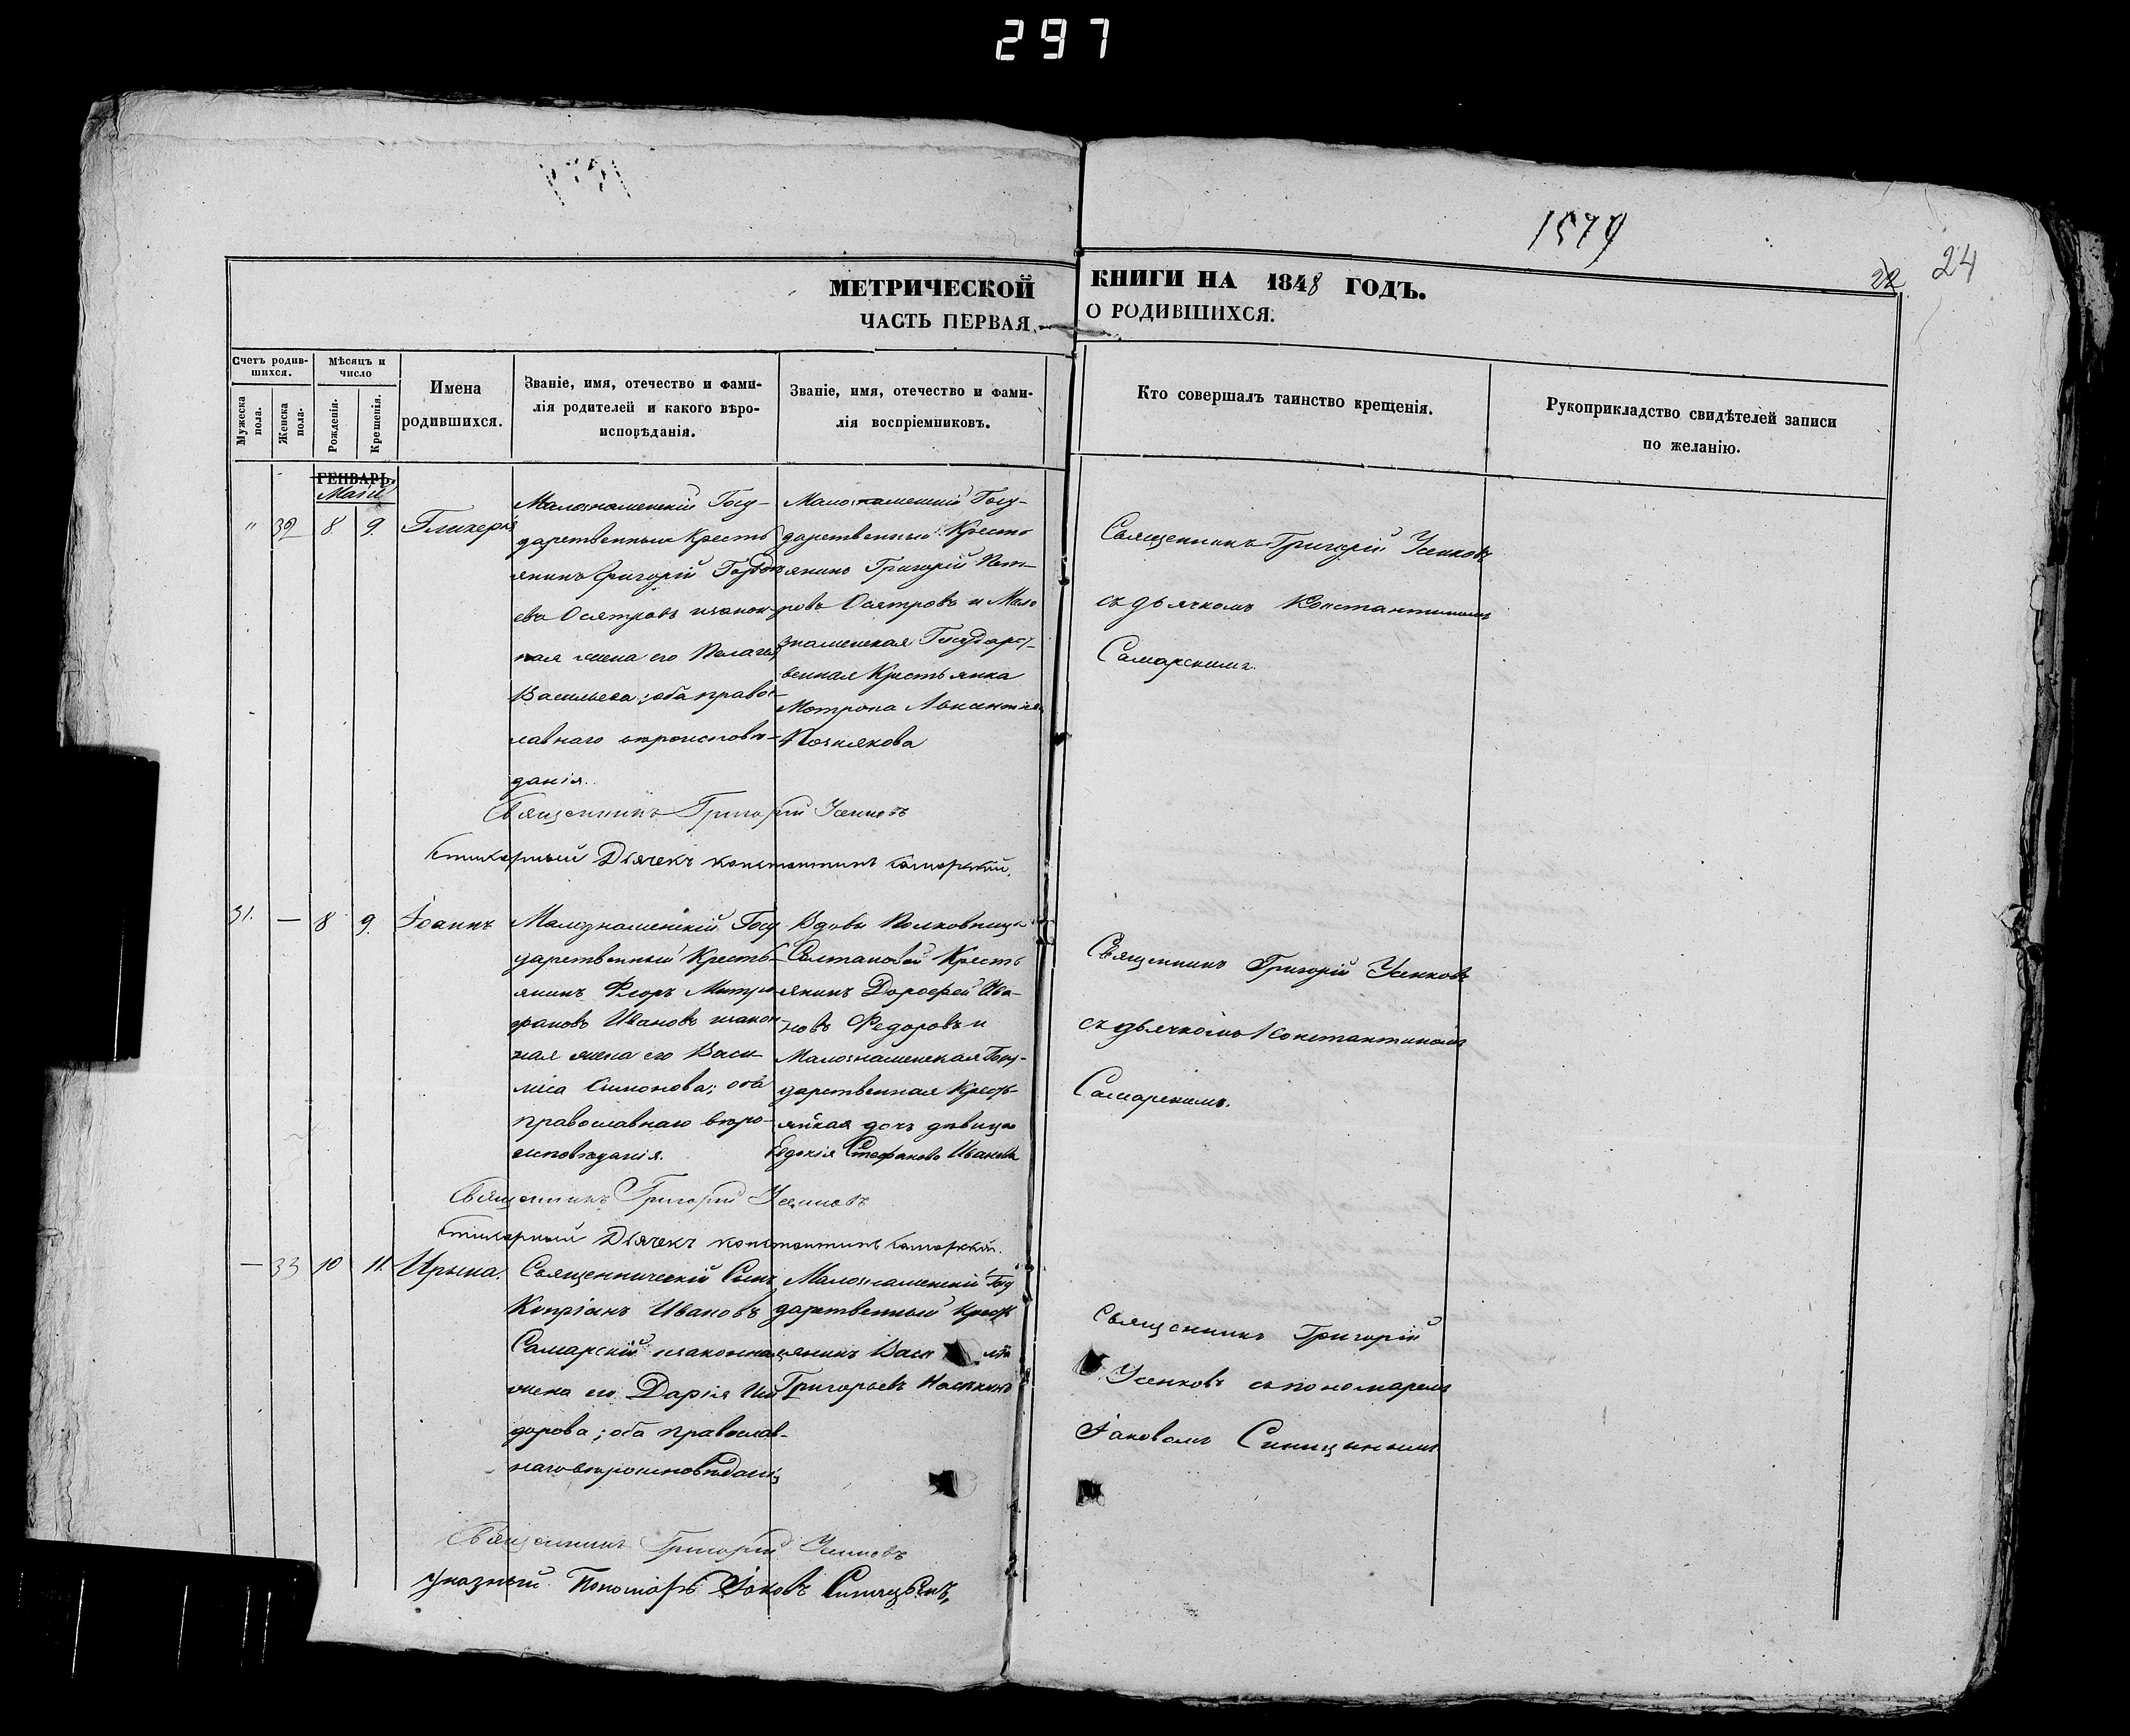 297
1579
24
22
МЕТРИЧЕСКОЙ КНИГИ НА 1848 ГОДЪ.
ЧАСТЬ ПЕРВАЯ, О РОДИВШИХСЯ.
Счетъ родив-
шихся.
Мужеска
пола.
Женска
пола.
Мѣсяцъ и
число
Рожденія.
Крещенія.
Имена
родившихся.
Званіе, имя, отечество и фами-
лія родителей и какого вѣро-
исповѣданія.
Званіе, имя, отечество и фами-
лія воспріемниковъ.
Кто совершалъ таинство крещенія.
Рукоприкладство свидѣтелей записи
по желанію.
ГЕНВАРЬ.
Маій
" 32 8 9. Гликерія
Малознаменскій Госу-
дарственный Кресть
янинъ Григорій Гордѣ
евъ Осятровъ изакон-
ная жена его Пелагея
Васильева; оба правос-
лавнаго вѣроисповѣ-
данія.
Малознаменскій Госу-
дарственный Кресть
янинъ Григорій Пет-
ровъ Осятровъ и Мало
знаменская Государст-
венная Крестьянка
Мотрона
Познякова
Священникъ Григорій Усенковъ
съ дьячкомъ Константиномъ
Самарскимъ.
Священникъ Григорій Усенковъ
Стихарный Дьячекъ Константинъ Самарскій.
31. — 8 9. Іоаннъ
Малознаменскій Госу
дарственный Кресть-
янинъ Флоръ Митро-
фановъ Ивановъ изакон-
ная жена его Васи-
лиса Симонова; оба
православнаго вѣро-
исповѣданія.
Вдовы Полковницы
Солтановой Кресть
янинъ Дорофей Ива-
новъ Федоровъ и
Малознаменская Госу-
дарственная Кресть-
янская дочь дѣвица
Евдокія Стефанова Иванова
Священникъ Григорій Усенковъ
съ дьячкомъ Константиномъ
Самарскимъ.
Священникъ Григорій Усенковъ
Стихарный Дьячекъ Константинъ Самарскій.
— 33 10 11. Ирына.
Священническій Сынъ
Кипріянъ Ивановъ
Самарскій изаконная
жена его Дарія Иси
дорова; оба православ-
наго вѣроисповѣданія
Малознаменскій Госу
дарственный Кресть
янинъ Васи лій
Григорьевъ
Священникъ Григорій
Усенковъ съ пономаремъ
Іаковомъ Синицынымъ
Священникъ Григорій Усенковъ
Указный Пономарь Іаковъ Синицынъ,